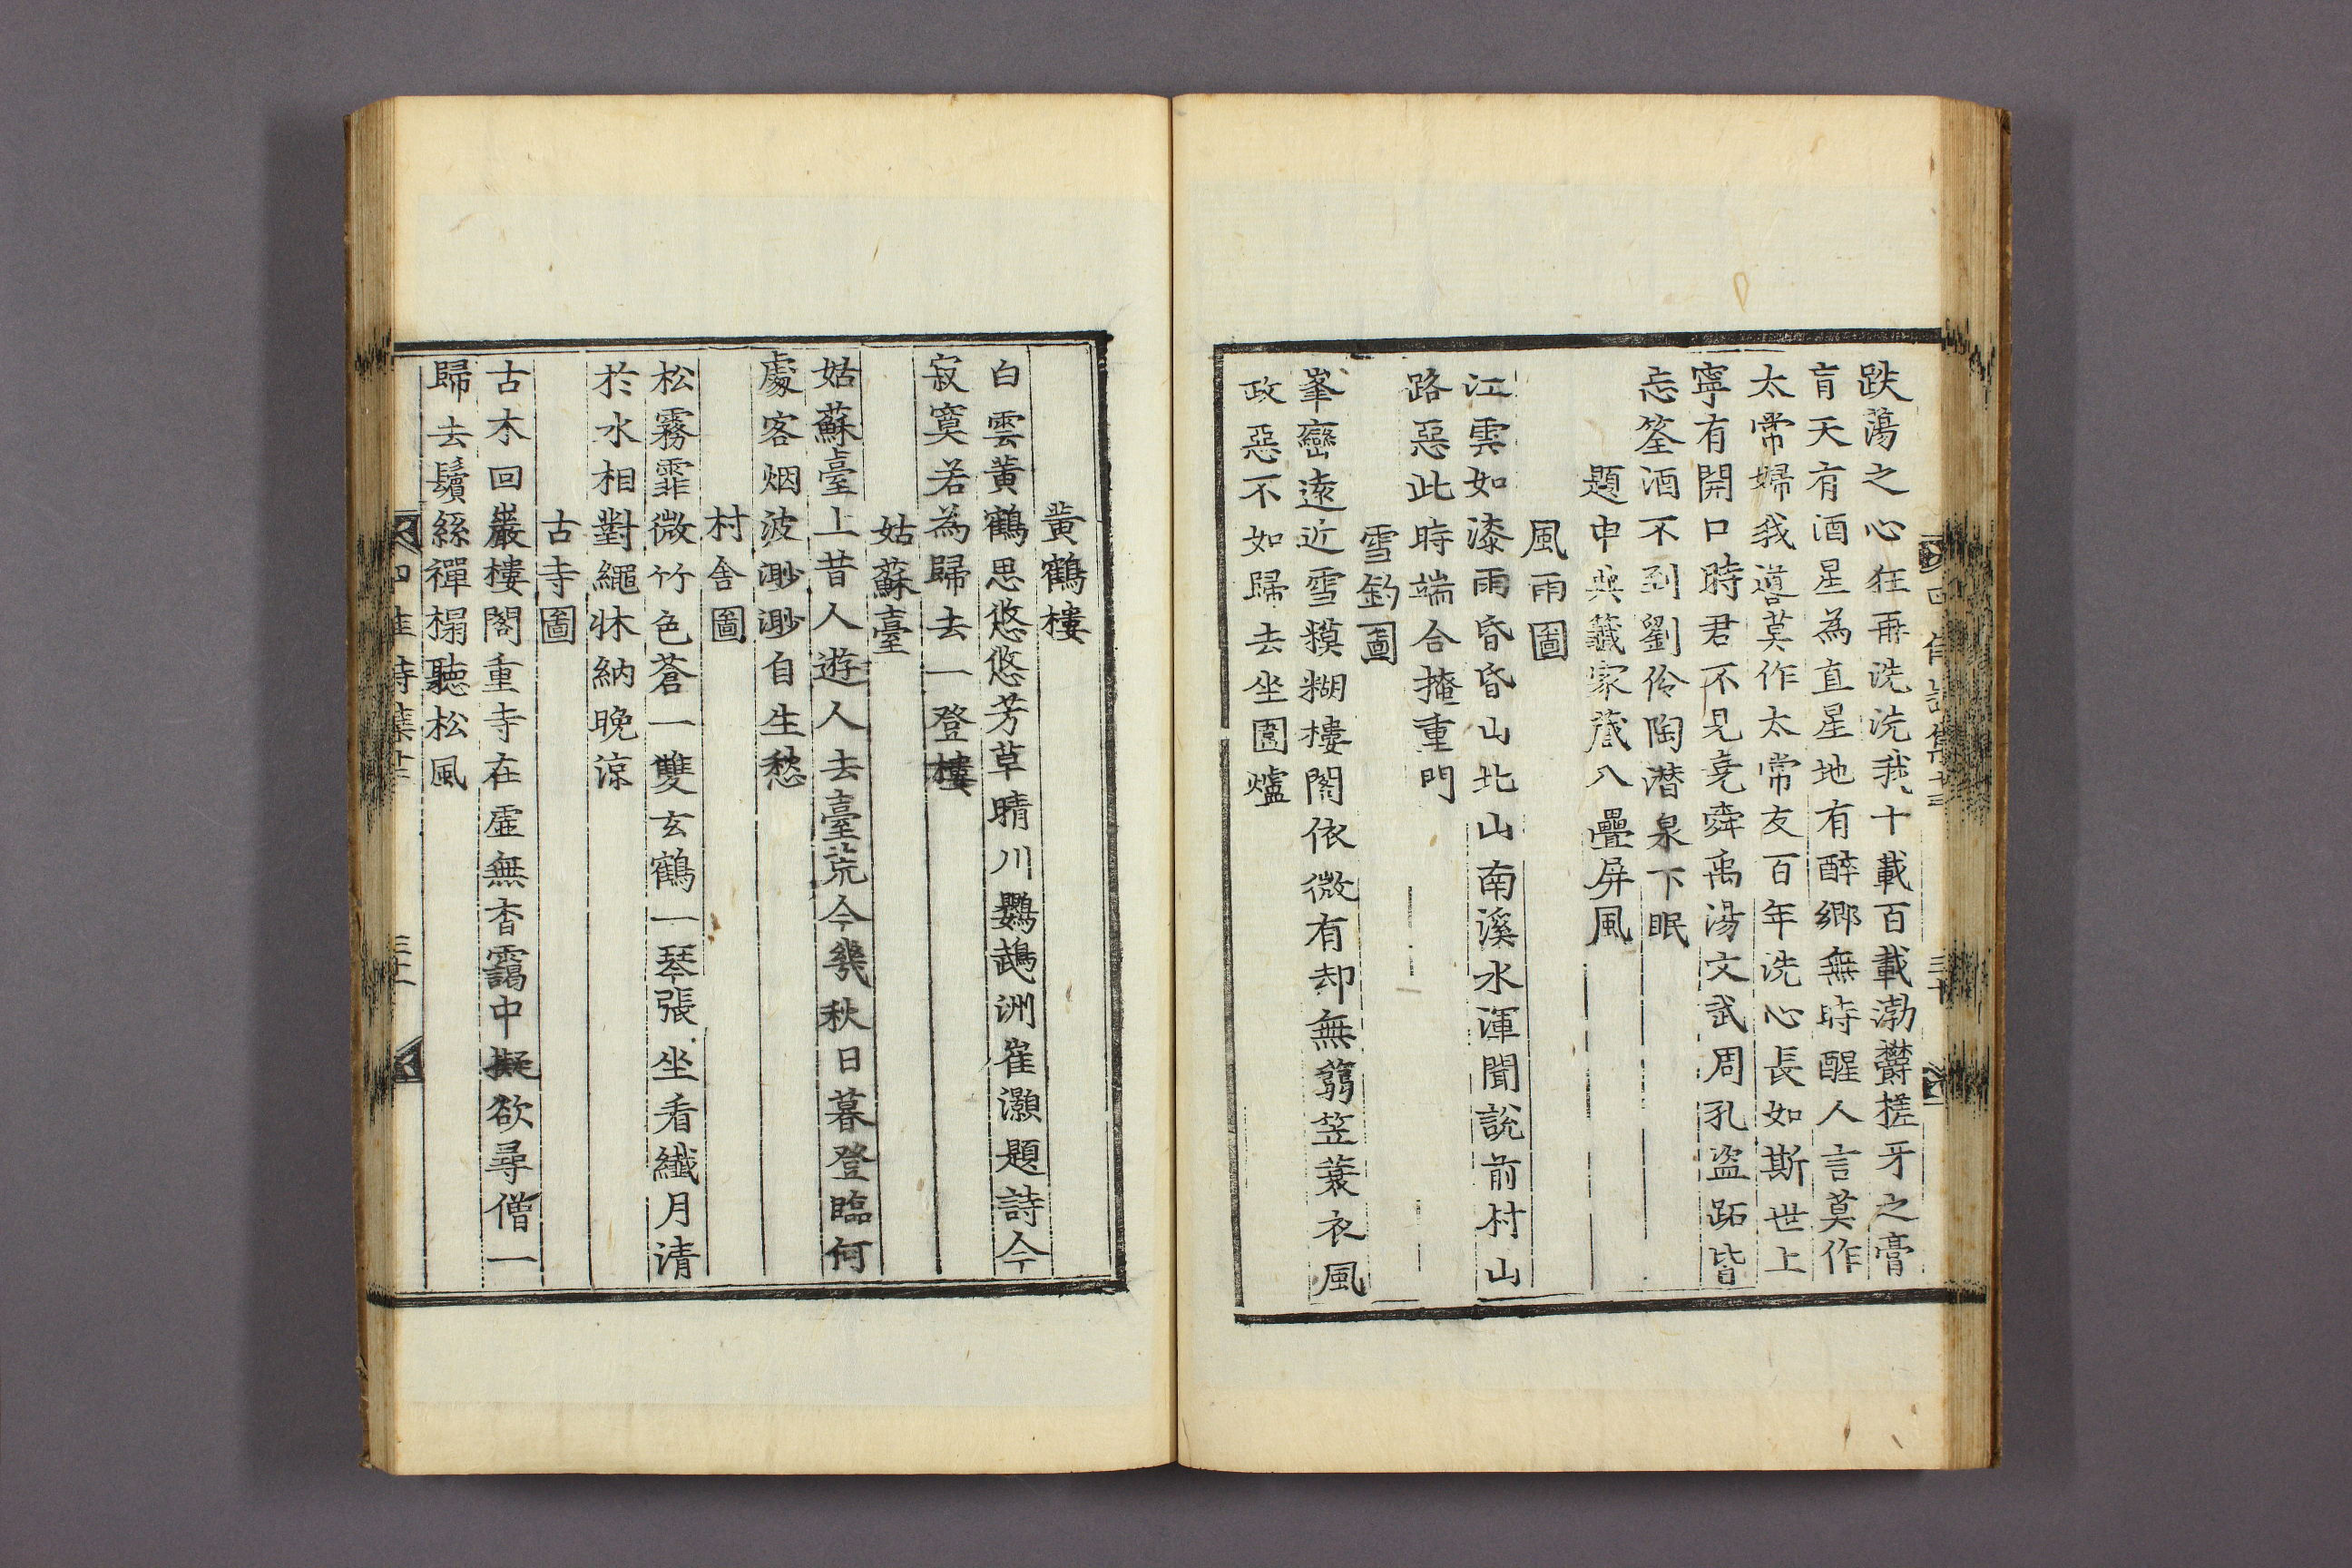 跌蕩之心狂再洗洗我十載百載渤欝槎牙之膏
肓天有酒星為直星地有醉鄉無時醒人言莫作
太常婦我道莫作太常友百年洗心長如斯世上
寧有開口時君不見堯舜禹湯文武周孔盜跖皆
忘筌酒不到劉伶陶潜泉下眠
題申典籤家藏八疊屏風
風雨圖
江雲如漆雨昏昏山北山南溪水渾聞說前村山
路惡此時端合掩重門
雪釣圖
峯巒遠近雪糢糊樓閣依微有却無蒻笠蓑衣風
政惡不如歸去坐圍爐
黃鶴樓
白雲黃鶴思悠悠芳草晴川鸚鵡洲崔灝題詩今
寂寞若為歸去一登樓
姑蘇臺
姑蘇臺上昔人遊人去臺荒今幾秋日暮登臨何
處客烟波渺渺自生愁
村舍圖
松霧霏微竹色蒼一雙玄鶴一琴張坐看纖月清
於水相對繩牀納晚涼
古寺圖
古木回巖樓閣重寺在虛無杳靄中擬欲尋僧一
歸去鬢絲禪榻聽松風